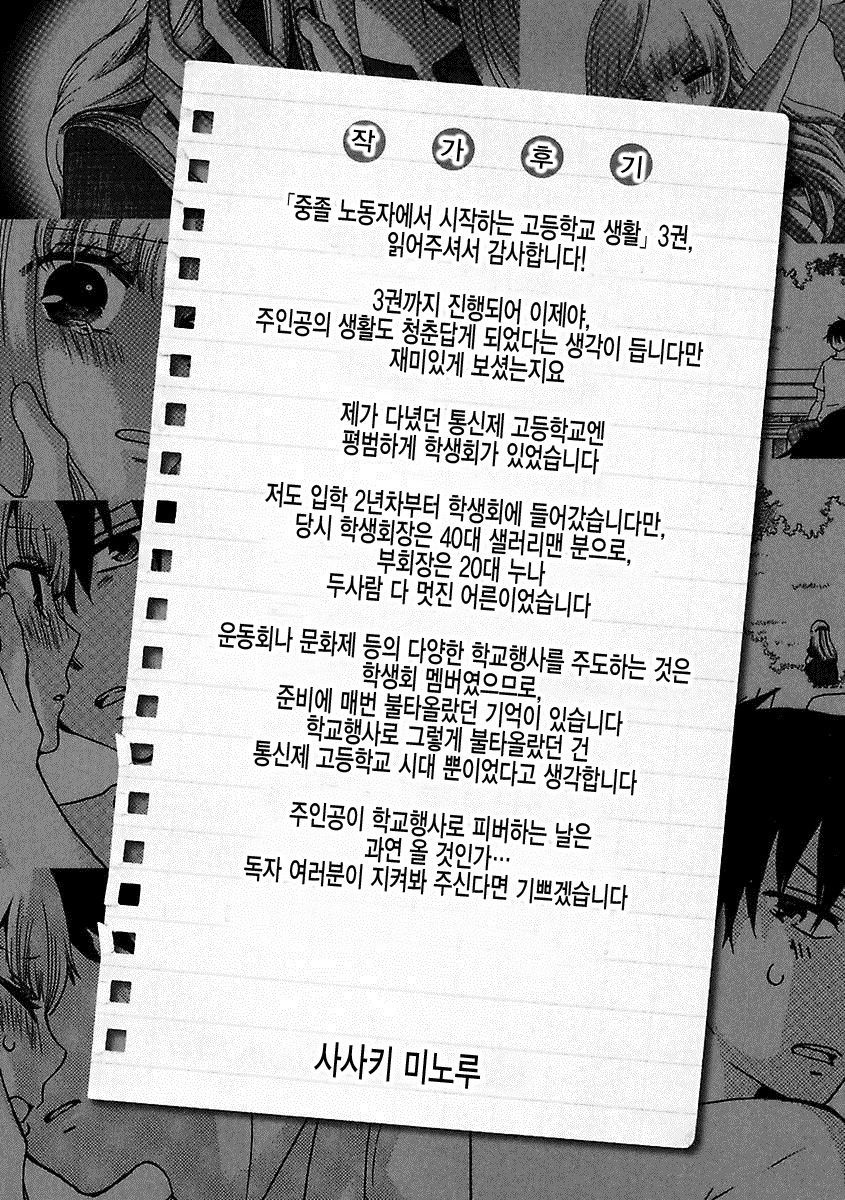 작가후기
「중졸 노동자에서 시작하는 고등학교 생활」 3권,
읽어주셔서 감사합니다!
3권까지 진행되어 이제야,
주인공의 생활도 청춘답게 되었다는 생각이 듭니다만
재미있게 보셨는지요
제가 다녔던 통신제 고등학교엔
평범하게 학생회가 있었습니다
저도 입학 2년차부터 학생회에 들어갔습니다만,
당시 학생회장은 40대 샐러리맨 분으로,
부회장은 20대 누나
두사람 다 멋진 어른이었습니다
운동회나 문화제 등의 다양한 학교행사를 주도하는 것은
학생회 멤버였으므로,
준비에 매번 불타올랐던 기억이 있습니다
학교행사로 그렇게 불타올랐던 건
통신제 고등학교 시대 뿐이었다고 생각합니다
주인공이 학교행사로 피버하는 날은
과연 올 것인가…
독자 여러분이 지켜봐 주신다면 기쁘겠습니다
사사키 미노루